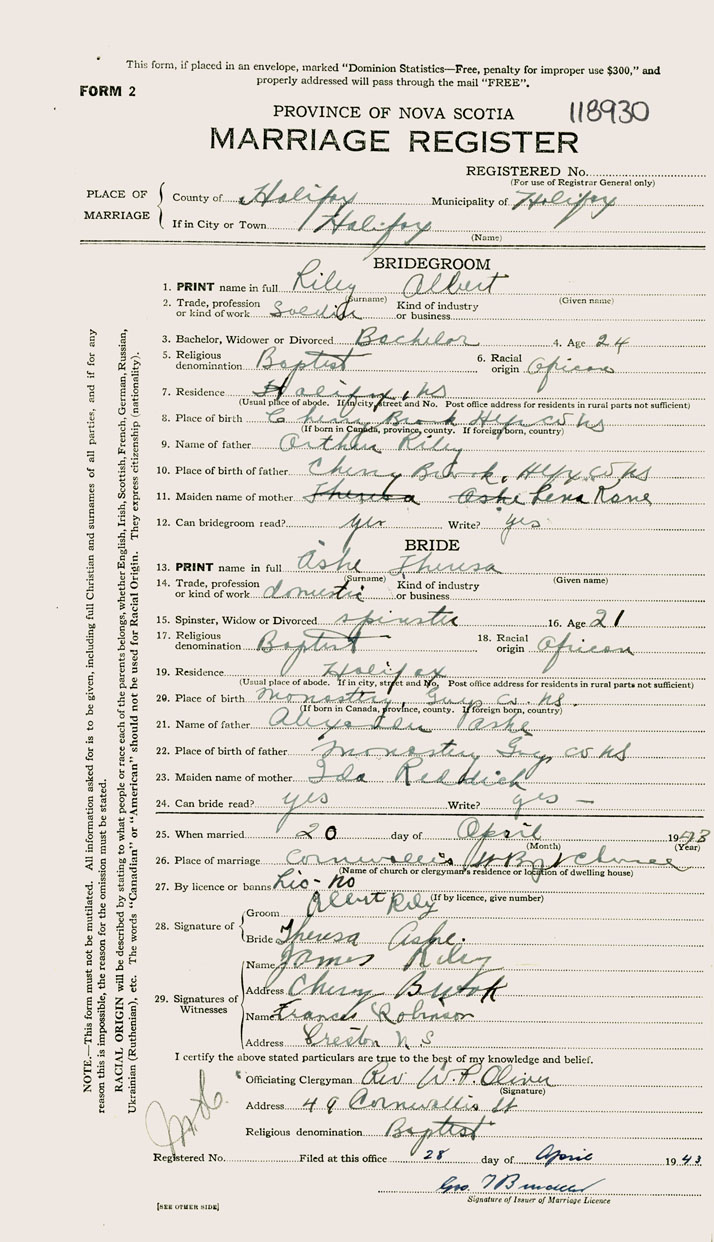 This form, if placed in an envelope, marked "Dominion Statistics—Free, penalty for improper use $300," and
properly addressed will pass through the mail "FREE".
FORM 2
PROVINCE OF NOVA SCOTIA 118930
MARRIAGE REGISTER
REGISTERED No.
(For use of Registrar General only)
PLACE OF MARRIAGE
County of Halifax Municipality of Halifax
If in City or Town Halifax
(Name)
BRIDEGROOM
1. PRINT name in full Riley Albert
(Surname) (Given name)
2. Trade, profession or kind of work Soldier Kind of industry or business
3. Bachelor, Widower or Divorced Bachelor 4. Age 24
5. Religious denomination Baptist 6. Racial origin African
7. Residence Halifax, NS
(Usual place of abode. If in city, street and No. Post office address for residents in rural parts not sufficient)
8. Place of birth Cherry Brook Hfx Co NS
(If born in Canada, province, county. If foreign born, country)
9. Name of father Arthur Riley
10. Place of birth of father Cherry Brook, Hfx Co NS
11. Maiden name of mother Theresa Ashe Lena Kane
12. Can bridegroom read? yes Write? yes
BRIDE
13. PRINT name in full Ashe Theresa
(Surname) (Given name)
14. Trade, profession or kind of work domestic Kind of industry or business
15. Spinster, Widow or Divorced spinster 16. Age 21
17. Religious denomination Baptist 18. Racial origin African
19. Residence Halifax
(Usual place of abode. If in city, street and No. Post office address for residents in rural parts not sufficient)
20. Place of birth Monastery, Guys Co. NS.
(If born in Canada, province, county. If foreign born, country)
21. Name of father Alexander Ashe
22. Place of birth of father Monastery Guy Co NS
23. Maiden name of mother Ida Reddick
24. Can bride read? yes Write? yes —
25. When married 20 day of April 1943
(Month) (Year)
26. Place of marriage Cornwallis St Bapt Church
(Name of church or clergyman's residence or location of dwelling house)
27. By licence or banns Lic- no
(If by licence, give number)
28. Signature of
Groom Albert Riley
Bride Theresa Ashe.
29. Signatures of Witnesses
Name James Riley
Address Cherry Brook
Name Frances Robinson
Address Preston N S
I certify the above stated particulars are true to the best of my knowledge and belief.
Officiating Clergyman Rev W. P. Oliver
(Signature)
Address 49 Cornwallis St
Religious denomination Baptist
Registered No. Filed at this office 28 day of April 1943
Geo.
Signature of Issuer of Marriage Licence
[SEE OTHER SIDE]
NOTE.—This form must not be mutilated. All information asked for is to be given, including full Christian and surnames of all parties, and if for any
reason this is impossible, the reason for the omission must be stated.
RACIAL ORIGIN will be described by stating to what people or race each of the parents belongs, whether English, Irish, Scottish, French, German, Russian,
Ukrainian (Ruthenian), etc. The words "Canadian" or "American" should not be used for Racial Origin. They express citizenship (nationality).